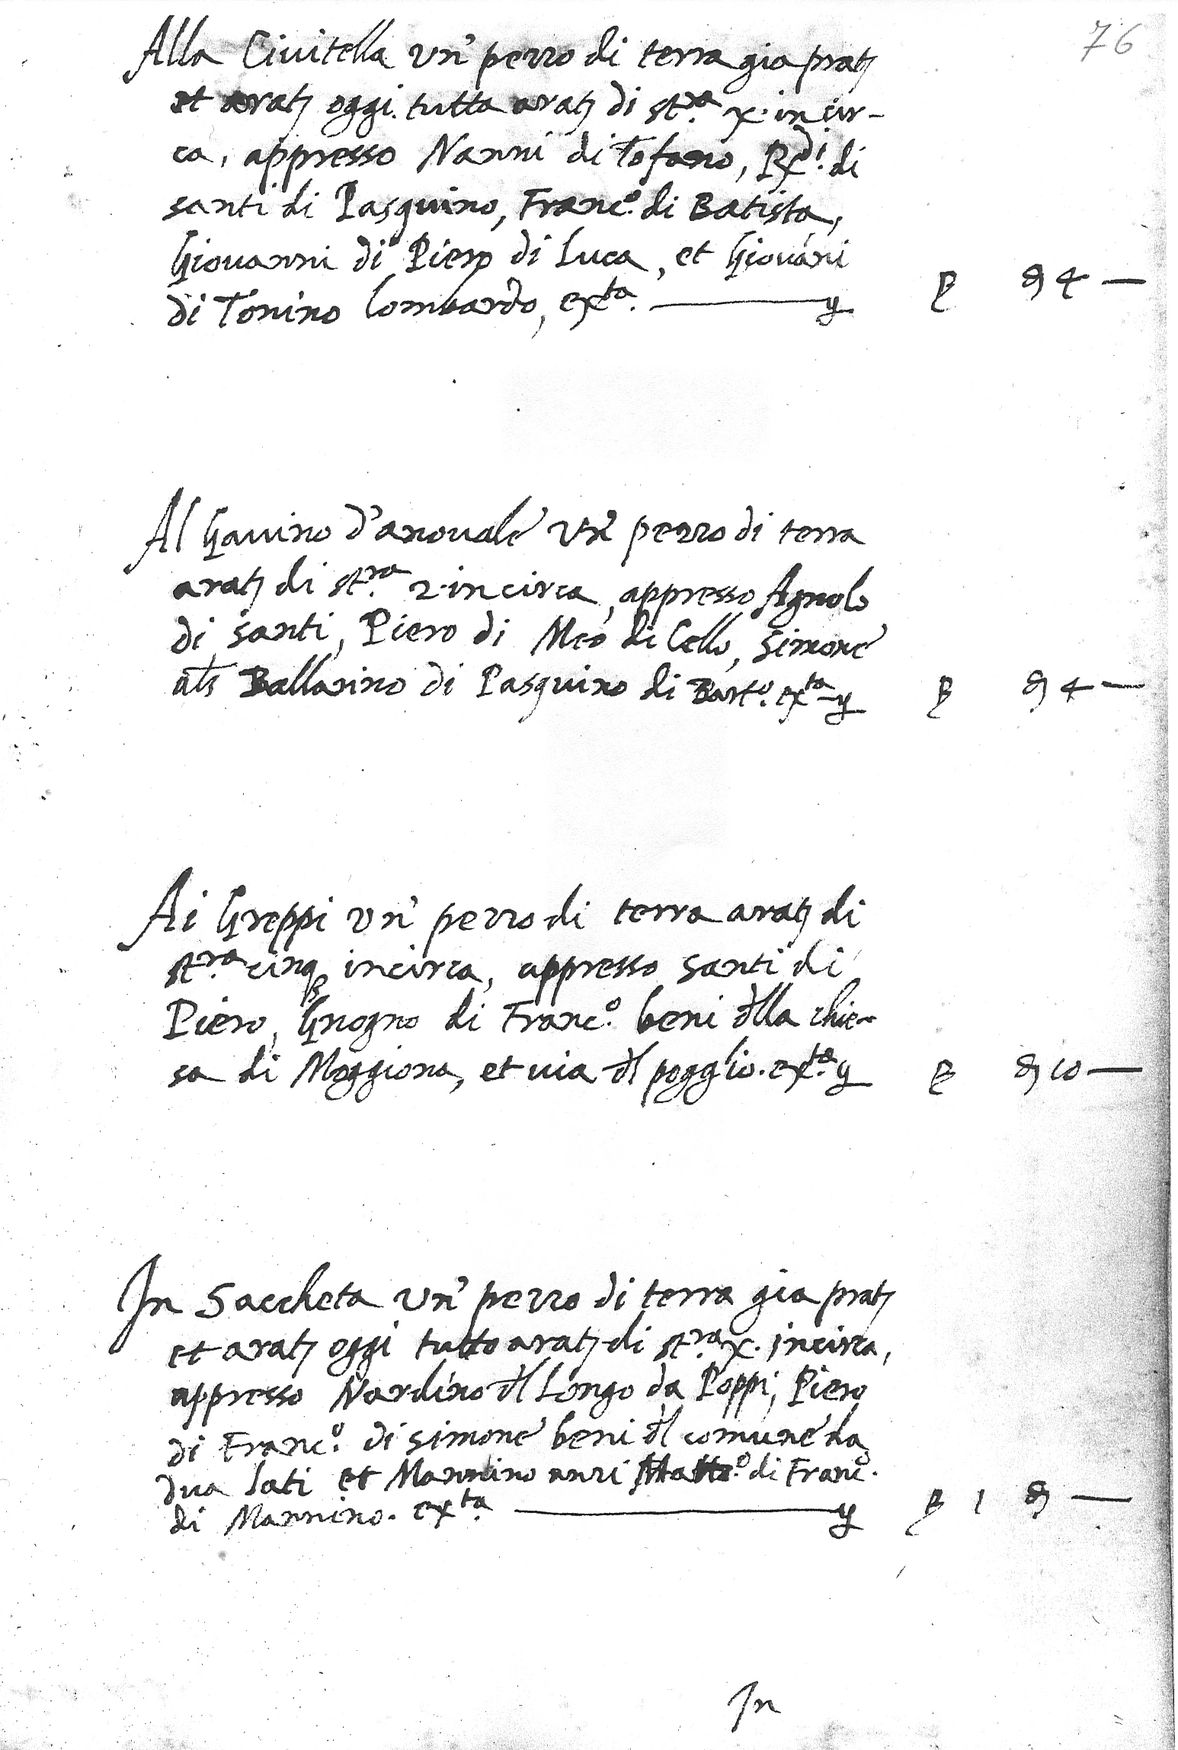 76
Alla Civitella un' pezzo di terra gia prat
et arat oggi tutta arat di st.ra x. in cir-
ca, appresso Nanni di Tofano, Redi. di
santi di Pasquino, Franc.o di Batista,
Giovanni di Piero di Luca, et Giovani
di Tonino lombardo, exta. — 4 — —
Al Gavino d'anovale un' pezzo di terra
arat di st.ra 2. incirca, appresso Agnolo
di santi, Piero di Meo di Cello, Simone
als Ballarino di Pasquino di Bart.o exta — 4 —
Ai Greppi un' pezzo di terra arat di
st.ra cinq incirca, appresso santi di
Piero, Gnogno di Franc.o beni dlla chie-
sa di Moggiona, et via dl poggio. exta. 10 —
In Saccheta un' pezzo di terra gia prat
et arat oggi tutto arat di st.ra x. incirca,
appresso Nardino dl Longo da Poppi, Piero
di Franc.o di simone beni dl comune da
dua lati et Mannino anzi Matt.o di Franc.o
di Mannino. exta. — 1 —
In